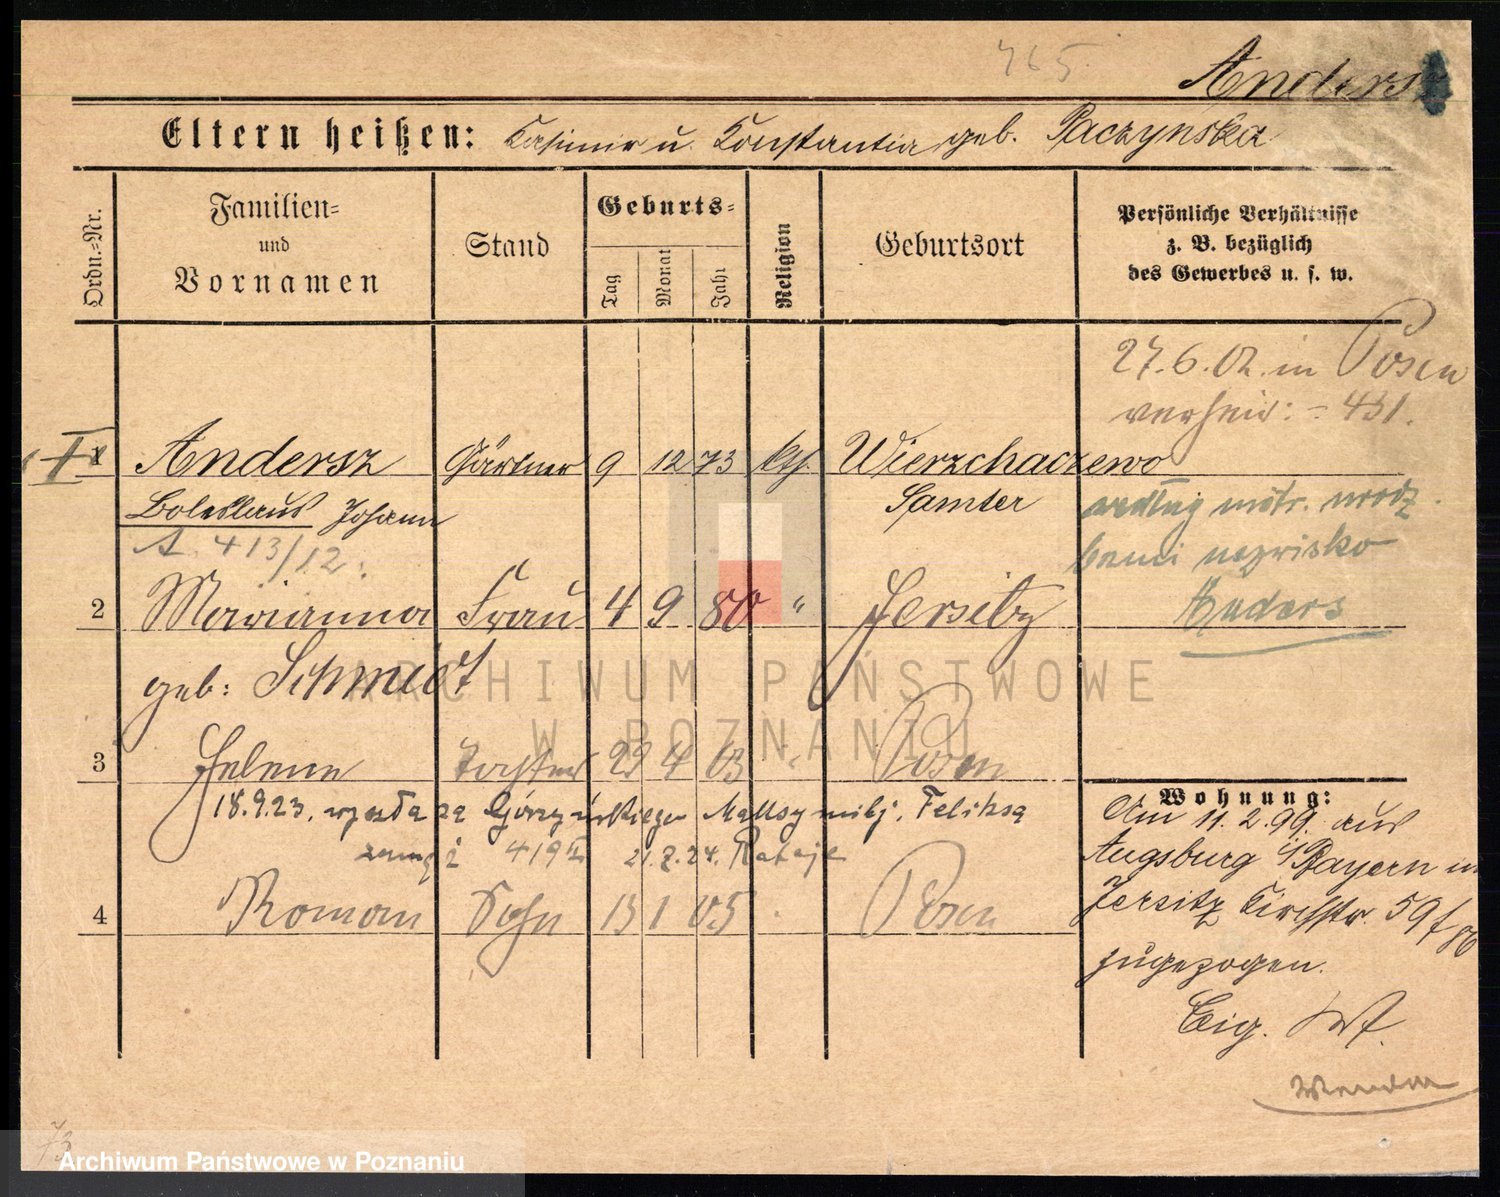 765
Andersz
Eltern heißen: Kasimir u. Konstantia geb. Paczynska
Ordn.-Nr.
Familien-
und
Vornamen
Stand
Geburts-
Tag
Monat
Jahr
Religion
Geburtsort
Persönliche Verhältnisse
z. B. bezüglich
des Gewerbes u. s. w.
27.6.02. in Posen
verheir: 431.
1 Andersz Gärtner 9 12 73 kth. Wierzchaczewo
Boleslaus Johann Samter
A. 413/12.
według metr. urodz.
nazwisko
Anders
2 Marianna Frau 4 9 80 " Jersitz
geb: Schmidt
ARCHIWUM PAŃSTWOWE
W POZNANIU
3 Helene Tochter 29 4 03 " Posen
18.9.23. wyszła za Górzyńskiego Maksymilj. Feliksa
zamąż 419 21.7.24. Rataje
4 Roman Sohn 13 1 05 Posen
Wohnung:
Am 11.2.99. aus
Augsburg i/Bayern in
Jersitz Kirchstr. 59
zugezogen.
73
Archiwum Państwowe w Poznaniu